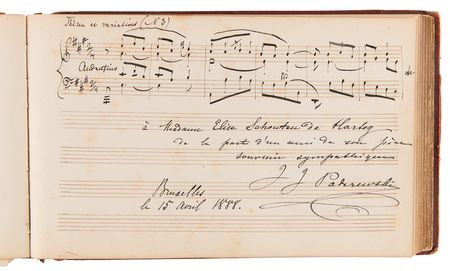 Thème et variations (N 3)
Andantino
à Madame Elise Schouten de Hartog
de la part d'un ami de son père
souvenir sympathique
J J Paderewski
Bruxelles
le 15 Avril 1888.